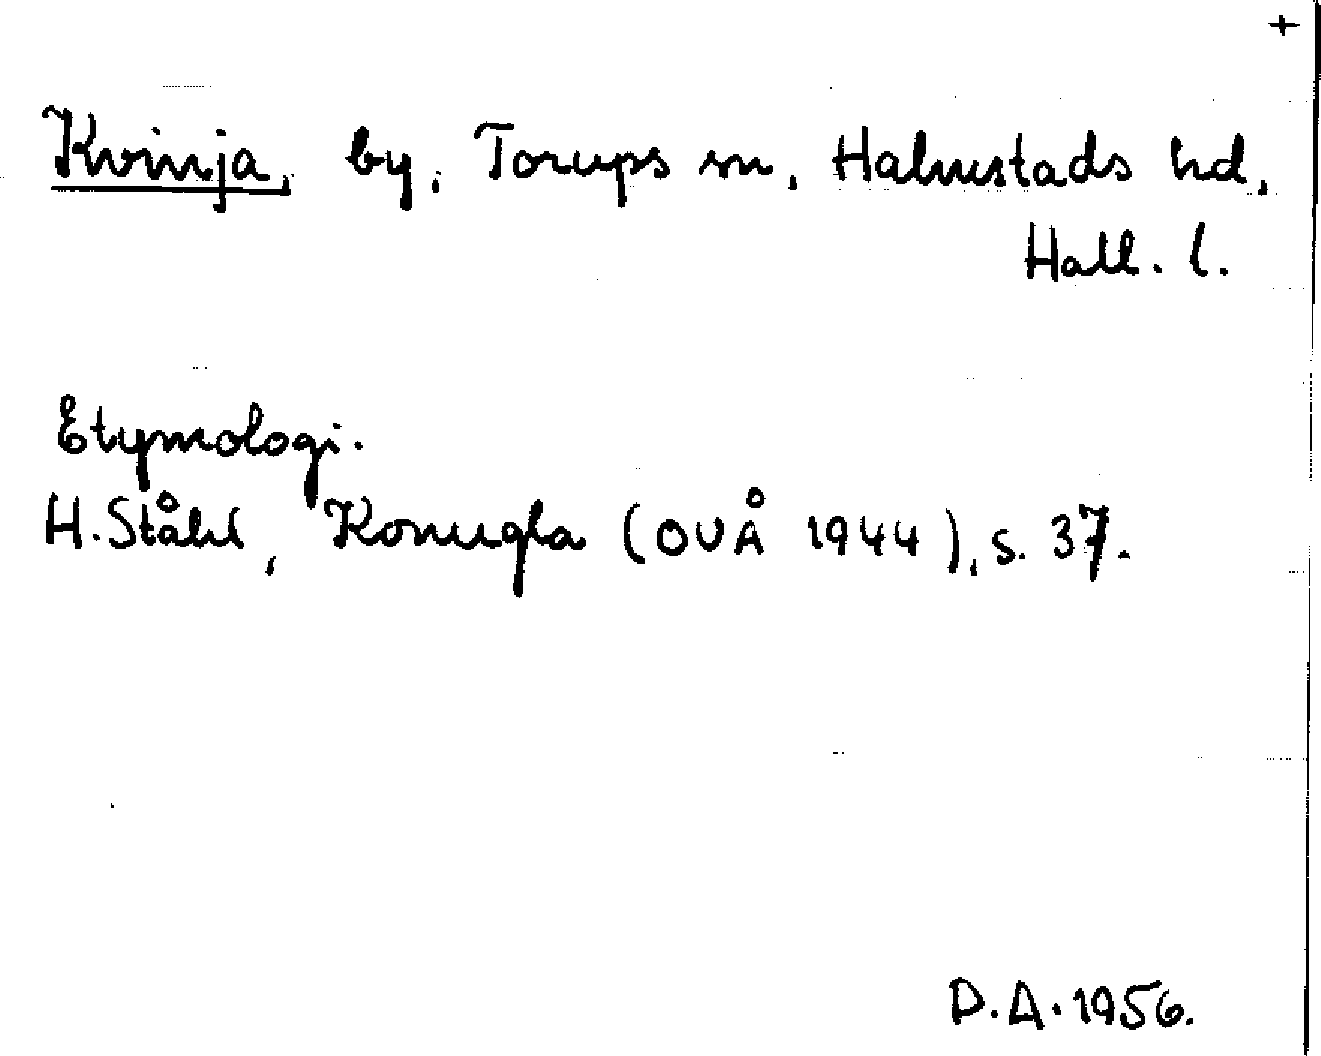 +
Kvinja, by, Torups sn, Halmstads hd,
Hall. l.
Etymologi.
H. Ståhl, Konugla (OUÅ 1944), s. 37.
D.A. 1956.